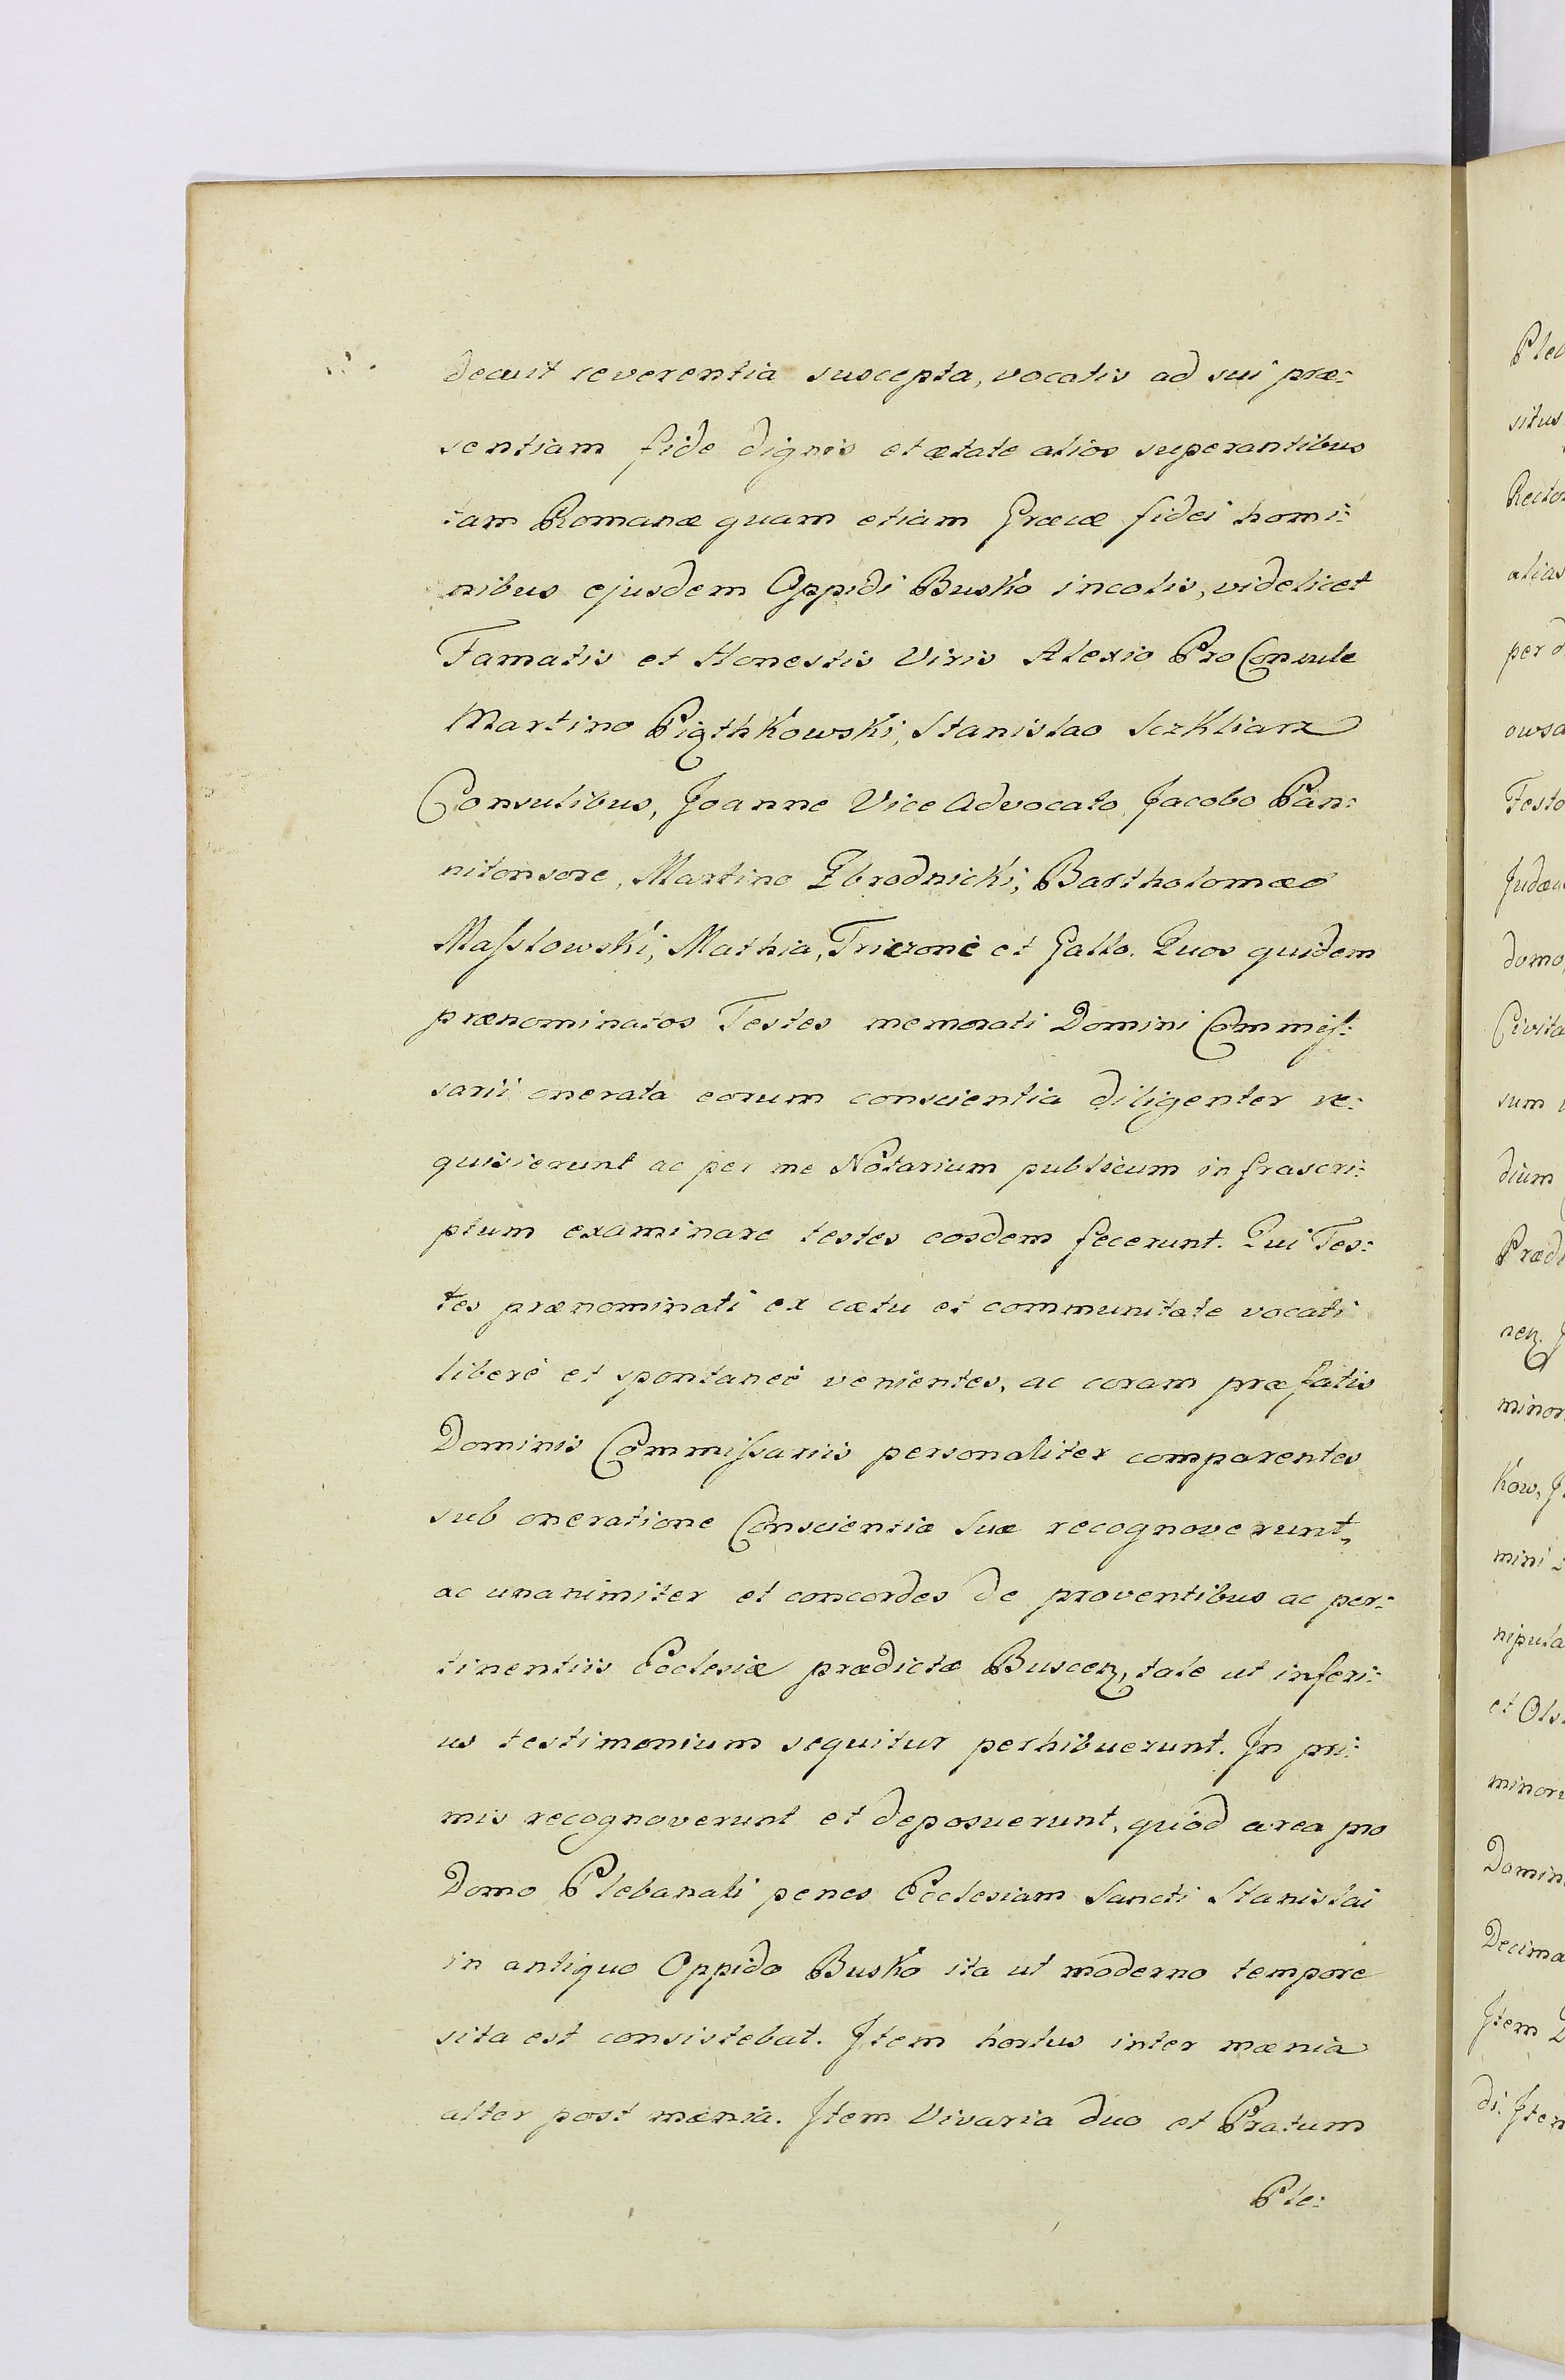 decuit reverentia suscepta, vocatis ad sui præ:
sentiam fide dignis et ætate alios superantibus
tam Romanæ quam etiam Græcæ fidei homi:
nibus ejusdem Oppidi Busko incolis, videlicet
Famatis et Honestis Viris Alexio Pro Consule
Martino Pigthkowski, Stanislao Sczkliarz
Consulibus, Joanne Vice Advocato, Jacobo Pan:
nitonsore, Martino Zbrodnicki, Bartholomæo
Maſslowski, Mathia, Triczonè et Gallo. Quos quidem
prænominatos Testes memorati Domini Commiſ:
sarii onerata eorum conscientia diligenter re:
quisierunt ac per me Notarium publicum infrascri:
ptum examinare testes eosdem fecerunt. Qui Tes:
tes prænominati ex cætu et communitate vocati
liberè et spontaneè venientes, ac coram præfatis
Dominis Commiſsariis personaliter comparentes
sub oneratione Conscientiæ Suæ recognoverunt,
ac unanimiter et concordes de proventibus ac per:
tinentiis Ecclesiæ prædictæ Buscen, tale ut inferi:
us testimonium sequitur perhibuerunt. In pri:
mis recognoverunt et deposuerunt, quòd area pro
Domo Plebanali penes Ecclesiam Sancti Stanislai
in antiquo Oppido Busko ita ut moderno tempore
sita est consistebat. Item hortus inter mænia
alter post mænia. Item Vivaria duo et Pratum
Ple:
situs
alias
per
domo
sum
dium
minor
mini
et
Item